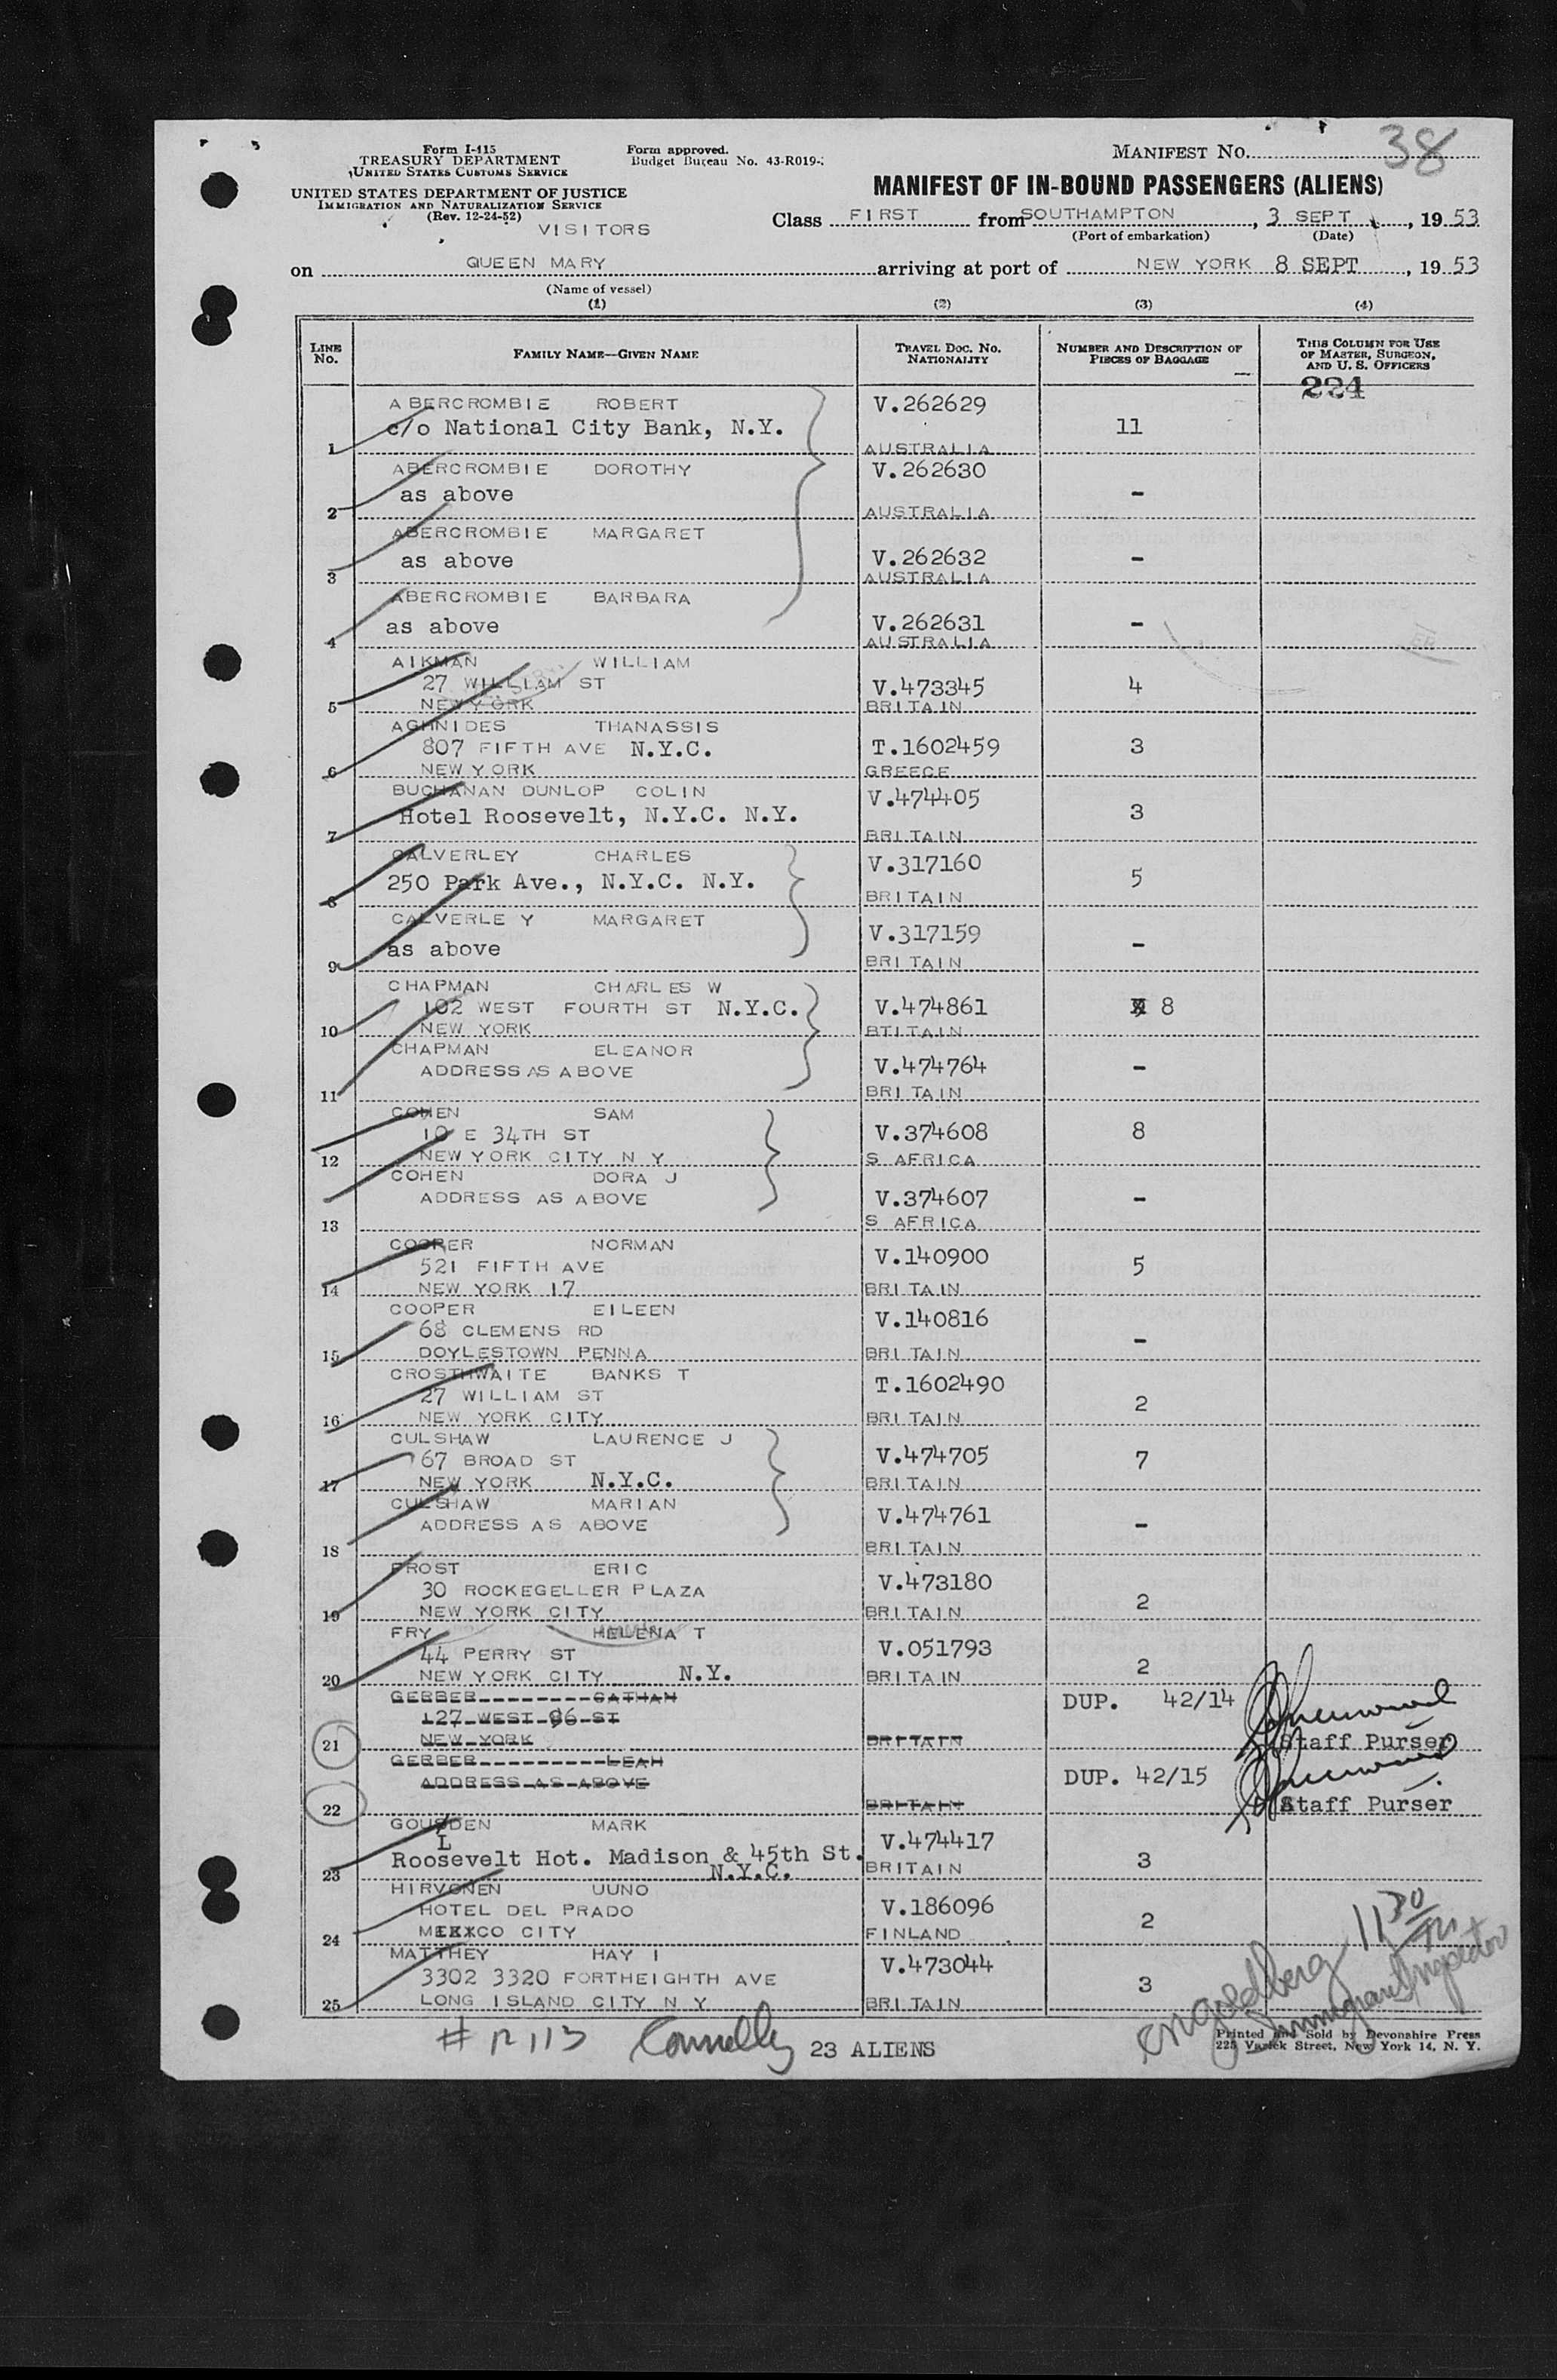 Form I-415
TREASURY DEPARTMENT
UNITED STATES CUSTOMS SERVICE
UNITED STATES DEPARTMENT OF JUSTICE
IMMIGRATION AND NATURALIZATION SERVICE
(Rev. 12-24-52)
VISITORS
Form approved.
Budget Bureau No. 43-R019-
MANIFEST NO. 38
MANIFEST OF IN-BOUND PASSENGERS (ALIENS)
Class FIRST from SOUTHAMPTON, 3 SEPT, 19 53
(Port of embarkation) (Date)
on QUEEN MARY arriving at port of NEW YORK 8 SEPT, 19 53
(Name of vessel)
(1) (2) (3) (4)
LINE No. FAMILY NAME—GIVEN NAME TRAVEL DOC. NO. NATIONALITY NUMBER AND DESCRIPTION OF PIECES OF BAGGAGE THIS COLUMN FOR USE OF MASTER, SURGEON, AND U. S. OFFICERS
224
ABERCROMBIE ROBERT V.262629
c/o National City Bank, N.Y. 11
1 AUSTRALIA
ABERCROMBIE DOROTHY V.262630
as above -
2 AUSTRALIA
ABERCROMBIE MARGARET
as above V.262632 -
3 AUSTRALIA
ABERCROMBIE BARBARA
as above V.262631 -
4 AUSTRALIA
AIKMAN WILLIAM
27 WILLIAM ST V.473345 4
5 NEW YORK BRITAIN
AGHNIDES THANASSIS
807 FIFTH AVE N.Y.C. T.1602459 3
6 NEW YORK GREECE
BUCHANAN DUNLOP COLIN V.474405
Hotel Roosevelt, N.Y.C. N.Y. 3
7 BRITAIN
CALVERLEY CHARLES V.317160
250 Park Ave., N.Y.C. N.Y. 5
8 BRITAIN
CALVERLE Y MARGARET V.317159
as above -
9 BRITAIN
CHAPMAN CHARLES W
102 WEST FOURTH ST N.Y.C. V.474861 8
10 NEW YORK BTITAIN
CHAPMAN ELEANOR
ADDRESS AS ABOVE V.474764 -
11 BRITAIN
COHEN SAM
10 E 34TH ST V.374608 8
12 NEW YORK CITY N Y S AFRICA
COHEN DORA J
ADDRESS AS ABOVE V.374607 -
13 S AFRICA
COOPER NORMAN V.140900
521 FIFTH AVE 5
14 NEW YORK 17 BRITAIN
COOPER EILEEN V.140816
68 CLEMENS RD -
15 DOYLESTOWN PENNA BRITAIN
CROSTHWAITE BANKS T T.1602490
27 WILLIAM ST 2
16 NEW YORK CITY BRITAIN
CULSHAW LAURENCE J
67 BROAD ST V.474705 7
17 NEW YORK N.Y.C. BRITAIN
CULSHAW MARIAN V.474761
ADDRESS AS ABOVE -
18 BRITAIN
FROST ERIC V.473180
30 ROCKEGELLER PLAZA 2
19 NEW YORK CITY BRITAIN
FRY HELENA T V.051793
44 PERRY ST 2
20 NEW YORK CITY N.Y. BRITAIN
GERBER CATHAN DUP. 42/14
127 WEST 96 ST
21 NEW YORK BRITAIN Staff Purser
GERBER LEAH
ADDRESS AS ABOVE DUP. 42/15
22 BRITAIN Staff Purser
GOUSDEN MARK
L V.474417
Roosevelt Hot. Madison & 45th St. 3
23 N.Y.C. BRITAIN
HIRVONEN UUNO
HOTEL DEL PRADO V.186096 2
24 MEXICO CITY FINLAND
MATTHEY HAY I V.473044
3302 3320 FORTHEIGHTH AVE 3
25 LONG ISLAND CITY N Y BRITAIN
Connelly 23 ALIENS
Goldberg
Immigrant Inspector
1130
Printed and Sold by Devonshire Press
225 Varick Street, New York 14, N. Y.